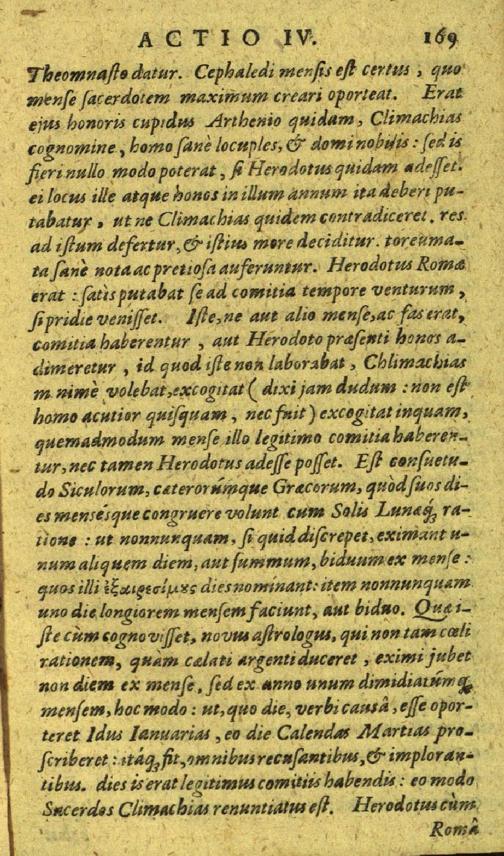 ACTIO IV. 169
Theomnasto datur. Cephaledi mensis est certus, quo
mense sacerdotem maximum creari oporteat. Erat
ejus honoris cupidus Arthenio quidam, Climachias
cognomine, homo sanè locuples, & domi nobilis: sed is
fieri nullo modo poterat, si Herodotus quidam adesset.
ei locus ille atque honos in illum annum ita deberi pu-
tabatur, ut ne Climachias quidem contradiceret. res
ad istum defertur, & istius more deciditur. toreuma-
ta sanè nota ac pretiosa auferuntur. Herodotus Romæ
erat: satis putabat se ad comitia tempore venturum,
si pridie venisset. Iste, ne aut alio mense, ac fas erat,
comitia haberentur, aut Herodoto præsenti honos a-
dimeretur, id quod iste non laborabat, Chlimachias
m nimè volebat, excogitat (dixi jam dudum: non est
homo acutior quisquam, nec fuit) excogitat inquam,
quemadmodum mense illo legitimo comitia haberen-
tur, nec tamen Herodotus adesse posset. Est consuetu-
do Siculorum, cæterorúmque Græcorum, quod suos di-
es mensésque congruere volunt cum Solis Lunæq́; ra-
tione: ut nonnunquam, si quid discrepet, eximant u-
num aliquem diem, aut summum, biduum ex mense:
quos illi ἐξαιρεσίμους dies nominant: item nonnunquam
uno die longiorem mensem faciunt, aut biduo. Quæ i-
ste cùm cognovisset, novus astrologus, qui non tam cœli
rationem, quam cælati argenti duceret, eximi jubet
non diem ex mense, sed ex anno unum dimidiatúmq́;
mensem, hoc modo: ut, quo die, verbi causâ, esse opor-
teret Idus Ianuarias, eo die Calendas Martias pro-
scriberet: itáq; fit, omnibus recusantibus, & imploran-
tibus. dies is erat legitimus comitiis habendis: eo modo
Sacerdos Climachias renuntiatus est. Herodotus cùm
Româ